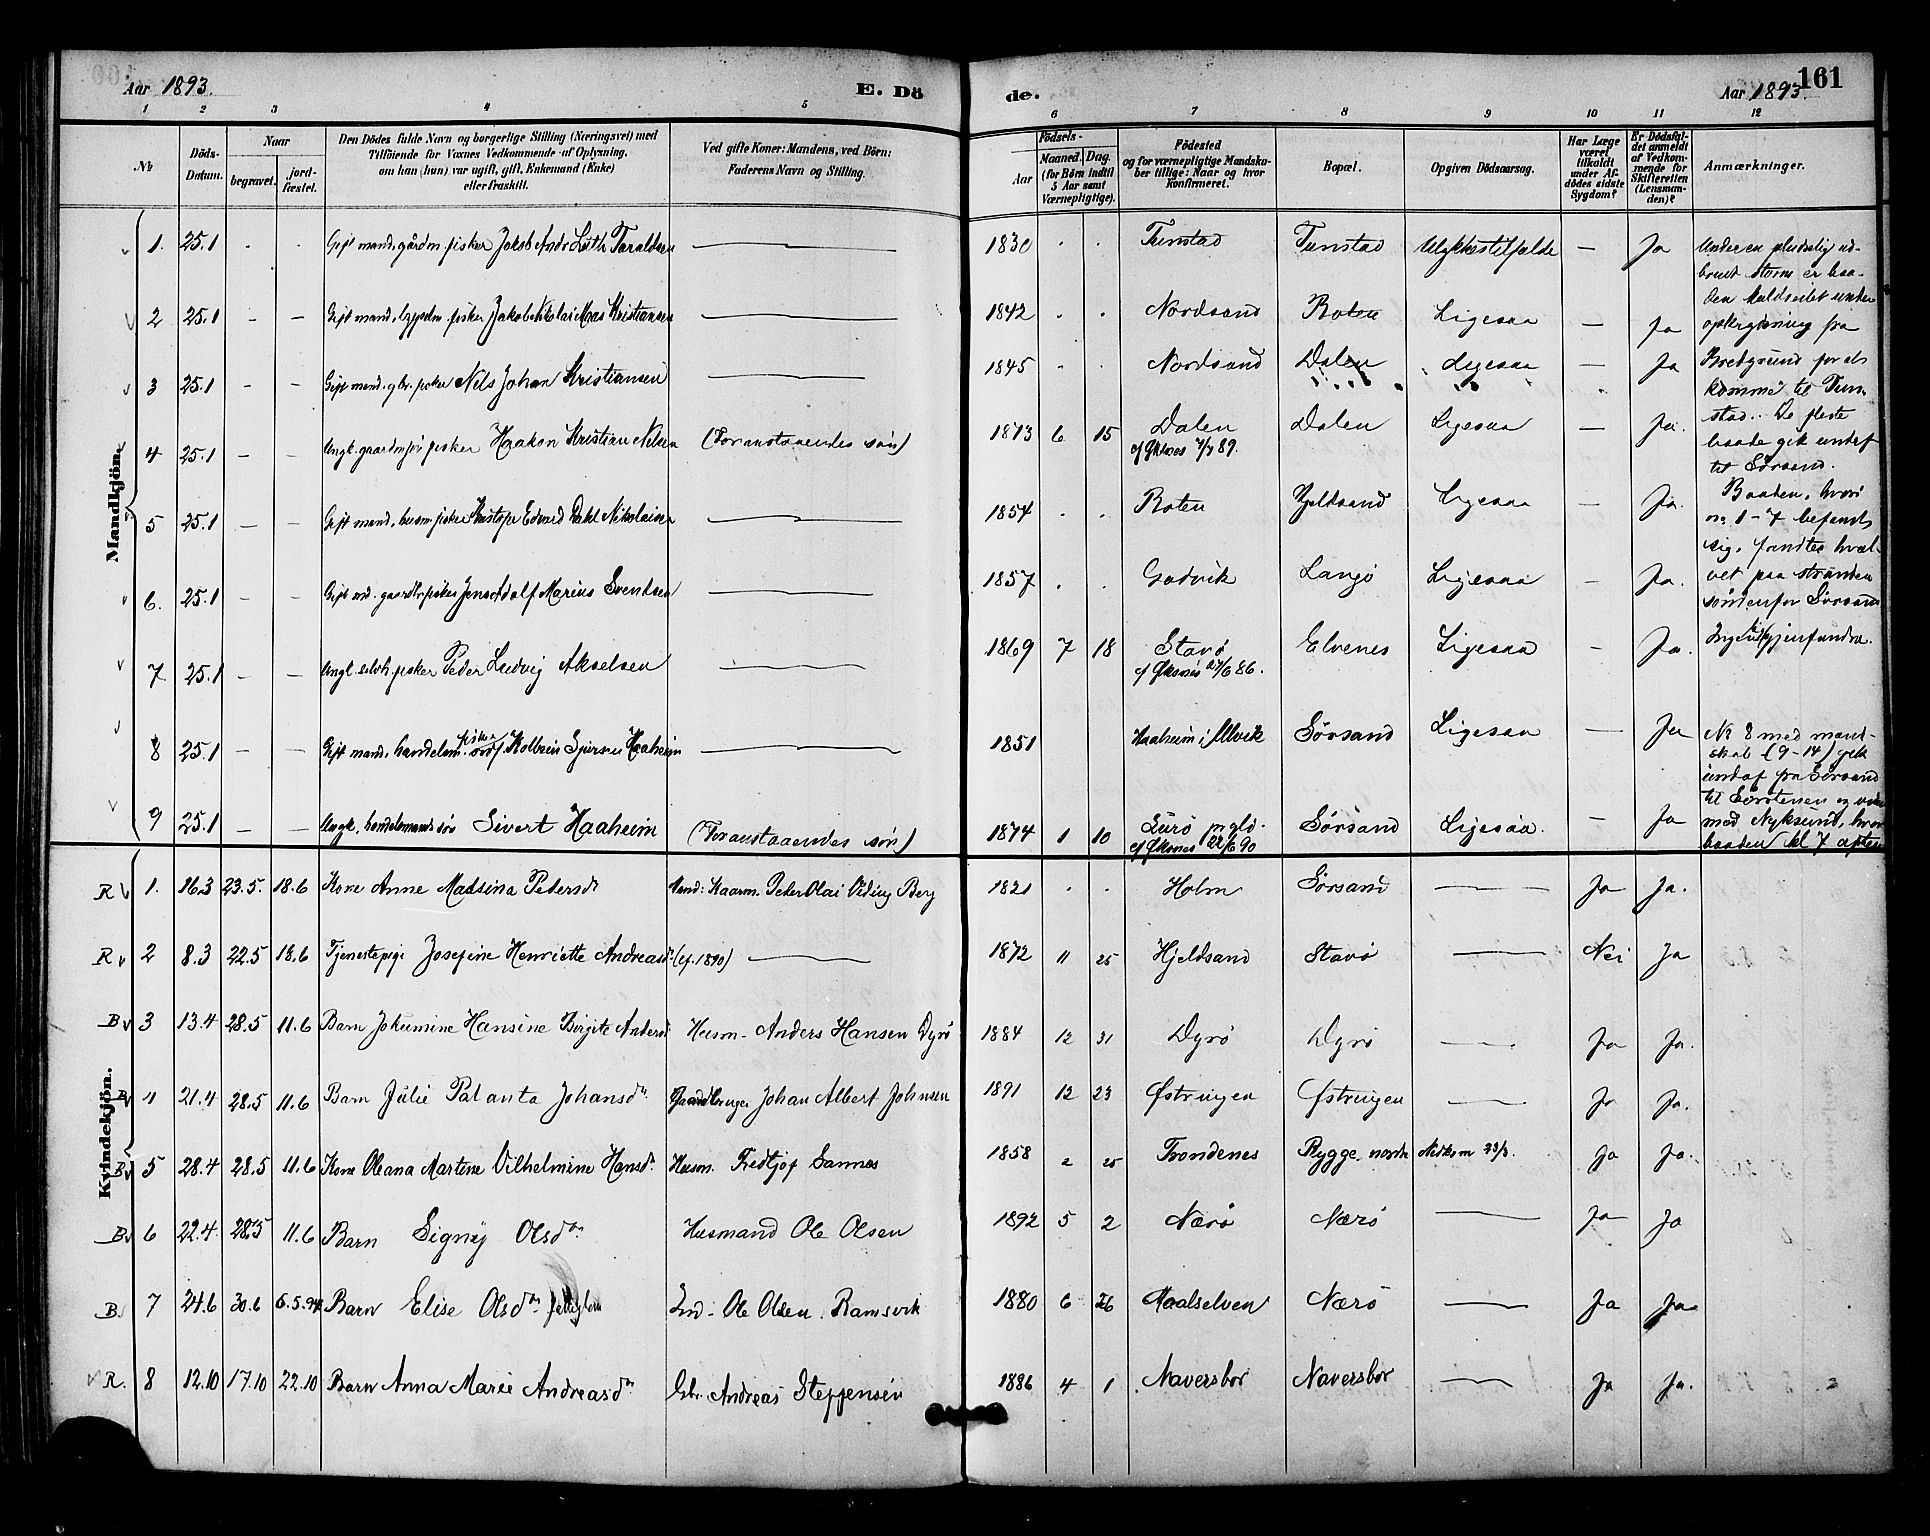 Aar 1893. E. Dö de. Aar 1893. 161
1 2 3 4 5 6 7 8 9 10 11 12
No
Döds-Datum.
Naar
begravet.
jord-fæstet.
Den Dödes fulde Navn og borgerlige Stilling (Næringsvei) med
Tilföiende for Voxnes Vedkommende af Oplysning,
om han (hun) var ugift, gift, Enkemand (Enke)
eller fraskilt.
Ved gifte Koner: Mandens, ved Börn:
Faderens Navn og Stilling.
Födsels-
Aar
Maaned. Dag.
(for Börn indtil
5 Aar samt
Værnepligtige).
Födested
og for værnepligtige Mandska-
ber tillige: Naar og hvor
konfirmeret.
Bopæl.
Opgiven Dödsaarsag.
Har Læge
været
tilkaldt
under Af-
dödes sidste
Sygdom?
Er Dödsfal-
det anmeldt
af Vedkom-
mende for
Skifteretten
(Lensman-
den)?
Anmærkninger.
Mandkjön.
1. 25.1 Gift mand, gårdm. fisker Jakob Andr. Luth Taraldsen 1830 Tunstad Tunstad Ulykkestilfælde — Ja
2 25.1 – – Gift mand, fisker Jakob Nikolai Kristiansen 1842 Nordsand Roten Ligesaa — Ja
3 25.1 – – Gift mand, gbr. fisker Nels Johan Kristiansen 1845 Nordsand Dalen Ligesaa — Ja
4 25.1 – – Ungk. fisker Haakon Kristian Nelsen (Foranstaaendes søn) 1873 6 15 Dalen Dalen Ligesaa — Ja.
cf Øksnes 89.
5 25.1 – – Gift mand, husm. fisker Edvard Dahl Nikolaisen 1854 Roten Hjeldsand Ligesaa — Ja.
6. 25.1 – – Gift md. fisker Jens Adolf Marius Svendsen 1857 Godvik Langø Ligesaa — Ja.
7. 25.1 – – Ungk. fisker Peder Ludvig Akselsen 1869 7 18 Stavø Elvenes Ligesaa Ja.
cf Øksnes 86.
8 25.1 – – Gift mand, handelsm. fisker Haaheim 1851 Haaheim i Ulvik Sørsand Ligesaa — Ja
9 25.1 – – Ungk. handelsmands søn Sivert Haaheim (Foranstaaendes søn) 1874 1 10 Lurø pgld. Sørsand Ligesaa. — Ja
cf Øksnes 22/6 90
Under en pludselig ud-
brudt storm er baa-
den kuldseilet under
opkrydsning fra
Bredgrund for at
komme til Tun-
stad. De fleste
baade gik undaf
til Sørsand.
Baaden, hvori
no 1–7 befandt
sig, fandtes hvæl-
vet paa stranden
søndenfor Sørsand
Ingen gjenfundne.
No 8 med mand-
skab (9–14) gik
undaf fra Sørsand
til
med Nyksund, hvor
baaden kl 7 aften
Kvindekjön.
R 1. 16.3 23.5. 18.6 Kone Anne Madsina Pedersdr Mand: Kaarm. Peder Olai Berg 1821 Holm Sørsand Ja Ja.
R 2 8.3 22.5 18.6 Tjenestepige Josefine Henriette Andreasdr (cf. 1890) 1872 11 25 Hjeldsand Stavø Nei Ja
B 3 13.4 28.5 11.6 Barn Jokumine Hansine Birgite Andersdr Husm. Anders Hansen Dyrø 1884 12 31 Dyrø Dyrø Ja Ja.
B 4 21.4 28.5 11.6 Barn Julie Palanta Johansdr. Gaardbruger Johan Albert Johnsen 1891 12 23 Østringen Østringen Ja Ja.
B 5 28.4 28.5 11.6 Kone Oleana Martine Vilhelmine Hansdr. Husm. Fredtjof Sannes 1858 2 25 Trondenes Rygge, nordre Nedkom 23/3. Ja Ja.
B 6 22.4 28.5 11.6 Barn Signy Olsdr Husmand Ole Olsen 1892 5 2 Nærø Nærø Ja Ja
B 7 24.6 30.6 6.5.94 Barn Elise Olsdr Ind. Ole Olsen Ramsvik 1880 6 26 Maalselven Nærø Ja Ja
R. 8 12.10 17.10 22.10 Barn Anna Marie Andreasdr Gbr. Andreas Steffensen 1886 4 1 Naversbor Naversbor Ja Ja.